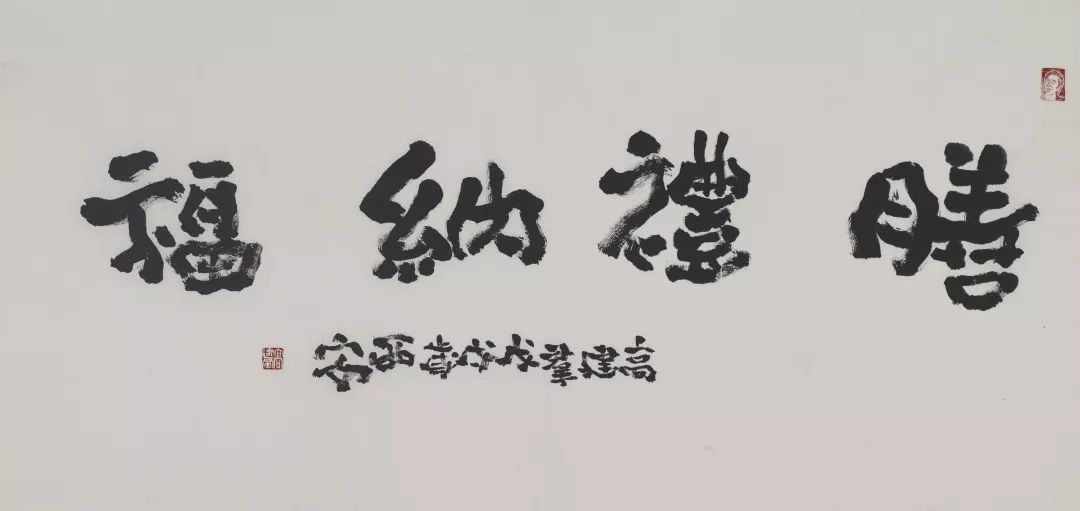 膳禮納福
高建羣戊戌歲西安